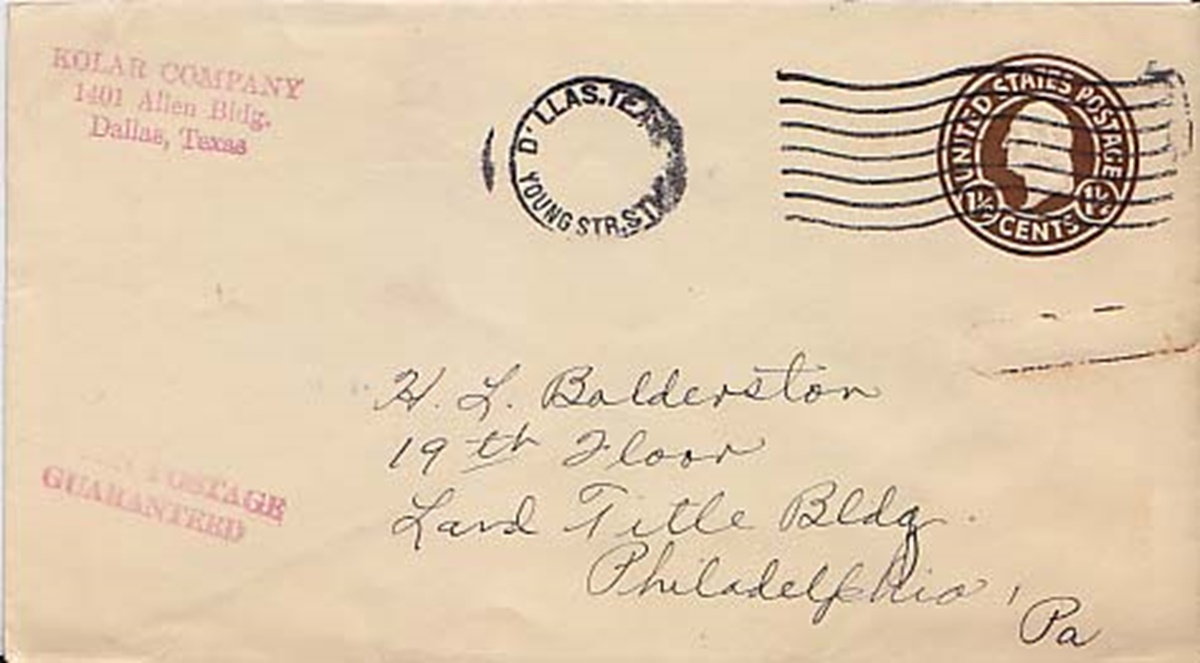 KOLAR COMPANY
1401 Allen Bldg.
Dallas, Texas
D'LLAS. TEX
YOUNG STR. ST
UNITED STATES POSTAGE
1½ 1½
CENTS
H. L. Balderston
19th Floor
Land Title Bldg.
Philadelphia,
Pa
POSTAGE
GUARANTEED